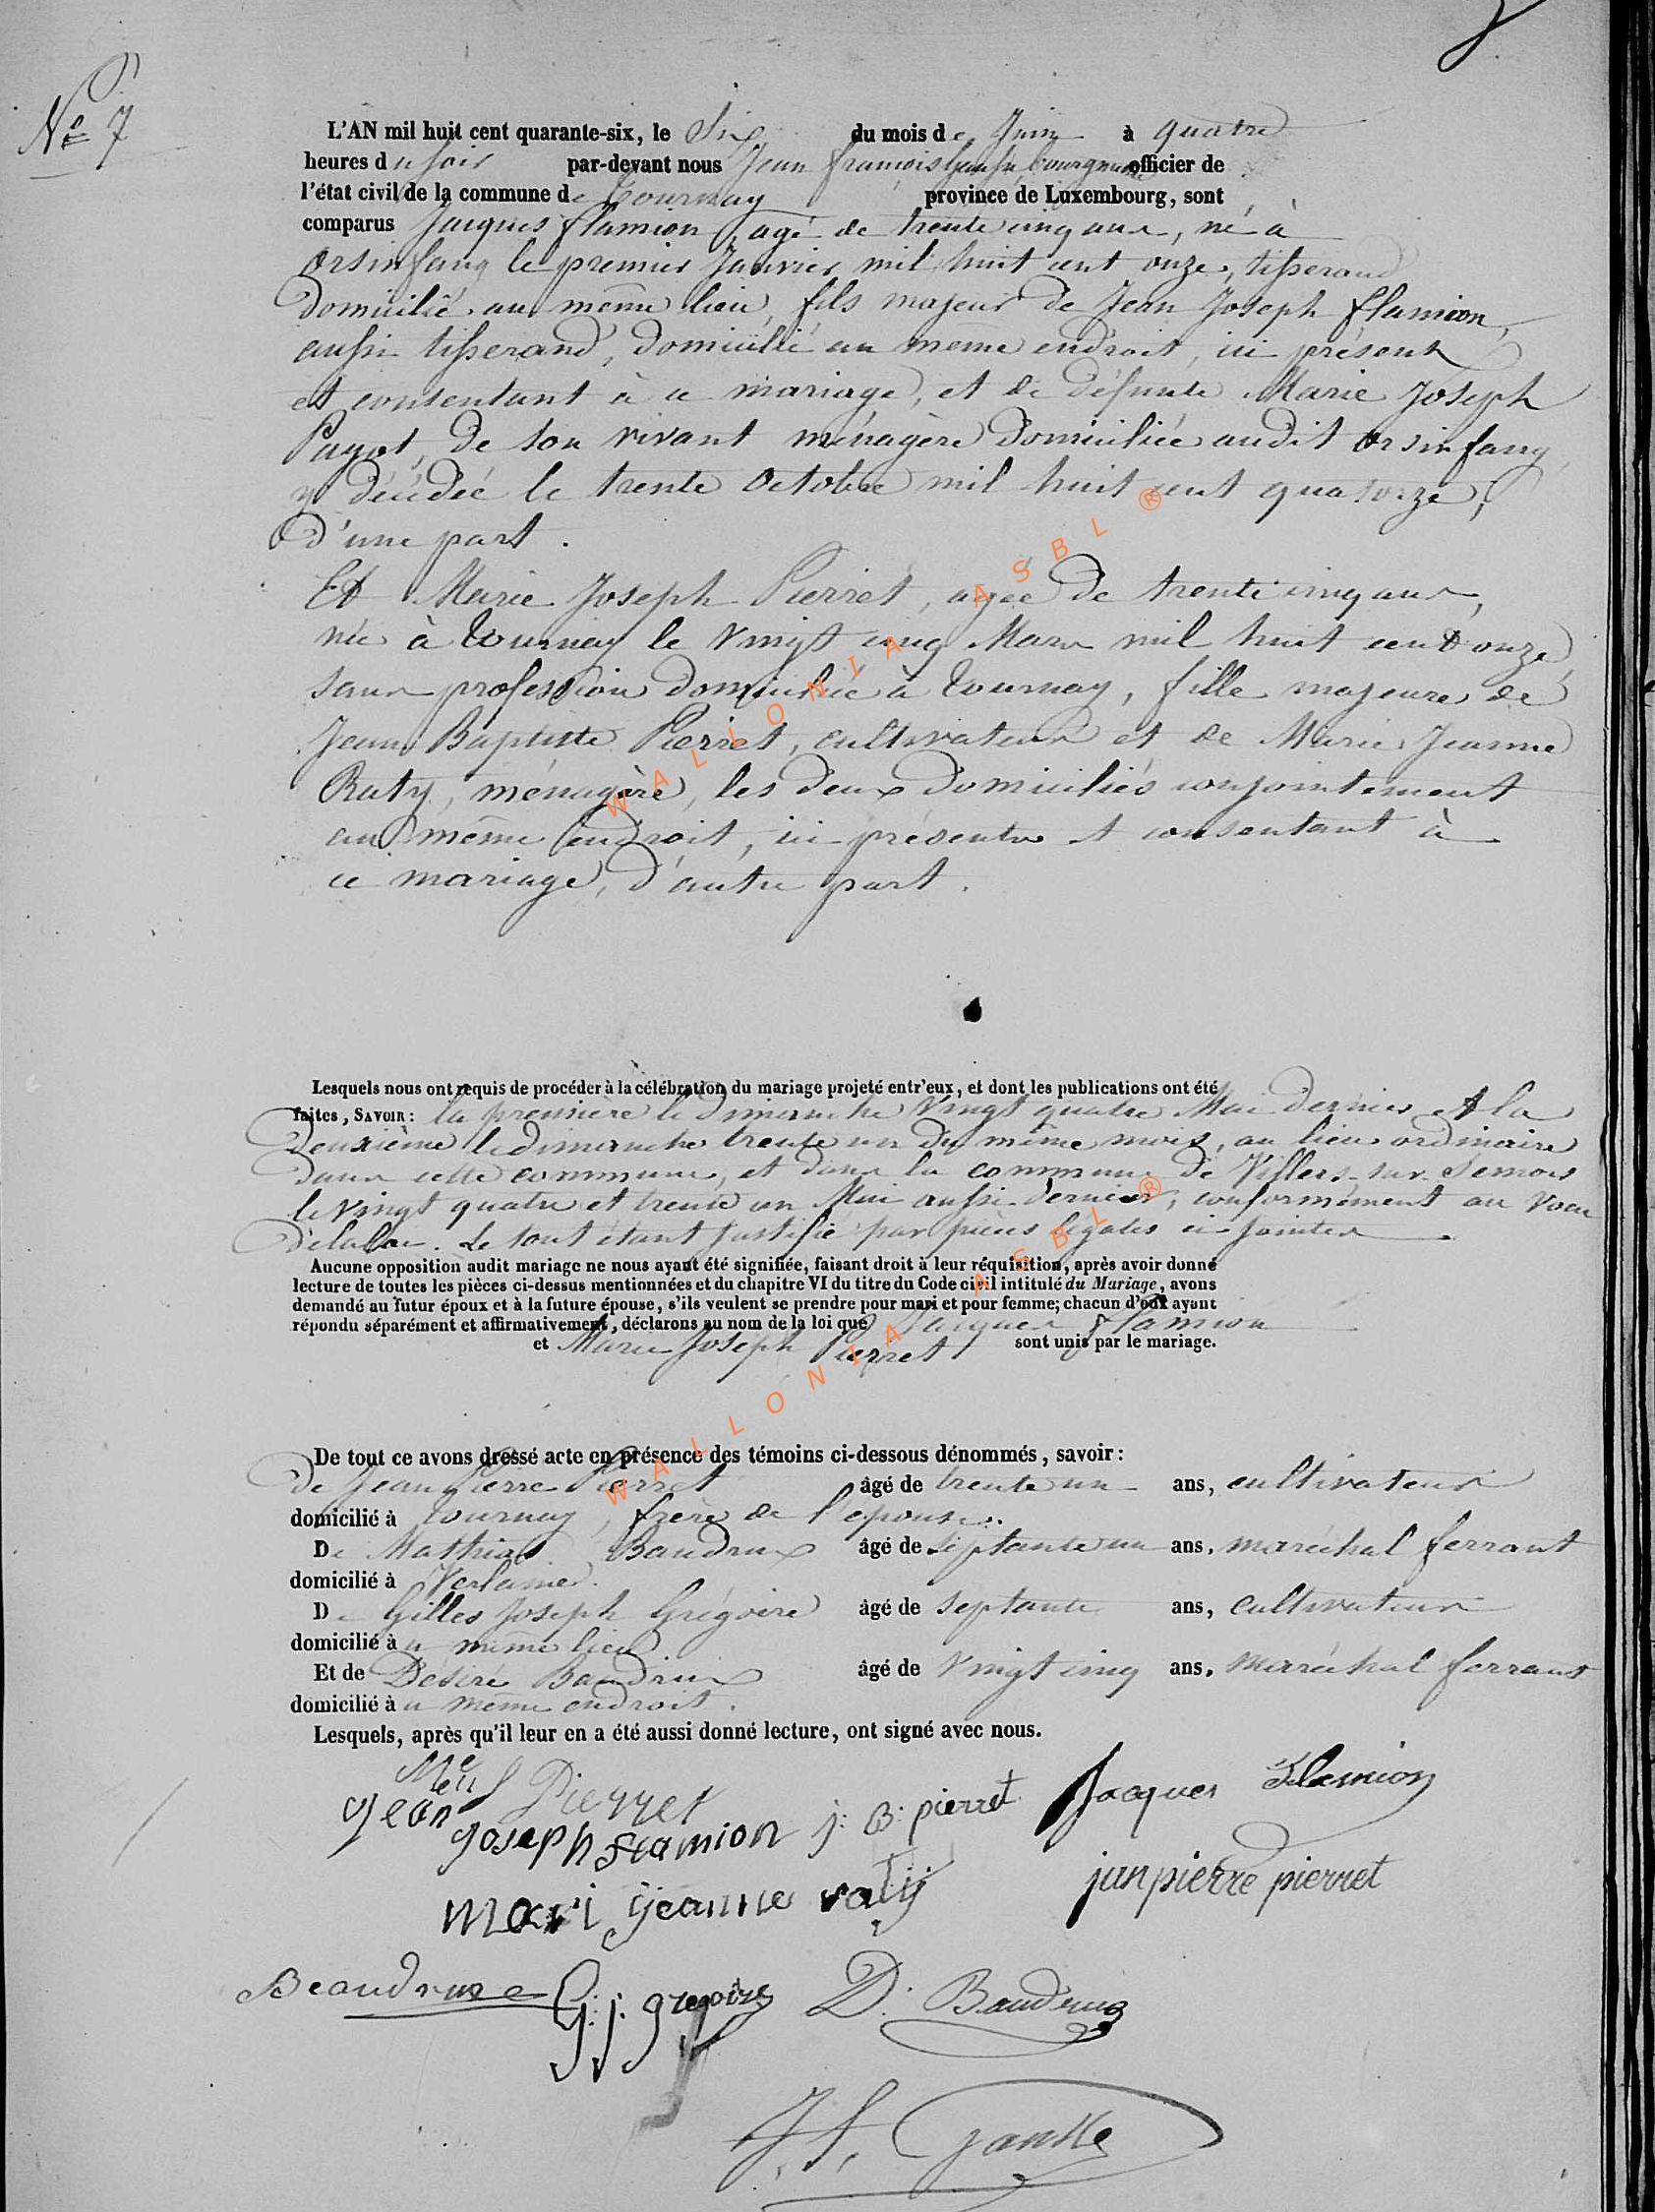 Nº 7
L'AN mil huit cent quarante-six, le Six du mois de Juin à quatre
heures du soir par-devant nous Jean françois bourgmestre officier de
l'état civil de la commune de Tournay province de Luxembourg, sont
comparus Jacques flamion, agé de trente cinq ans, né à
Orsinfaing le premier Janvier mil huit cent onze, tisserand
domicilié au même lieu, fils majeur de Jean Joseph flamion,
aussi tisserand, domicilié au meme endroit, ici présent
et consentant à ce mariage, et de défunte Marie Joseph
de son vivant ménagère domiciliée audit Orsinfaing
y décédée le trente Octobre mil huit cent quatorze,
d'une part.
Et Marie Joseph Pierret, agée de trente cinq ans,
née à Tournay le vingt cinq Mars mil huit cent onze,
sans profession domiciliée à Tournay, fille majeure de
Jean Baptiste Pierret, cultivateur et de Marie Jeanne
Raty, ménagère, les deux domiciliés conjointement
au même endroit, ici présents et consentant à
ce mariage, d'autre part.
Lesquels nous ont requis de procéder à la célébration du mariage projeté entr'eux, et dont les publications ont été
faites, SAVOIR: la première le dimanche vingt quatre Mai dernier et la
deuxième le dimanche trente un du même mois, au lieu ordinaire
dans cette commune, et dans la commune de Villers-sur-Semois
le vingt quatre et trente un Mai aussi dernier, conformément au voeu
de la loi. Le tout étant justifié par pièces légales ci-jointes
Aucune opposition audit mariage ne nous ayant été signifiée, faisant droit à leur réquisition, après avoir donné
lecture de toutes les pièces ci-dessus mentionnées et du chapitre VI du titre du Code civil intitulé du Mariage, avons
demandé au futur époux et à la future épouse, s'ils veulent se prendre pour mari et pour femme; chacun d'eux ayant
répondu séparément et affirmativement, déclarons au nom de la loi que Jacques flamion
et Marie Joseph Pierret sont unis par le mariage.
De tout ce avons dressé acte en présence des témoins ci-dessous dénommés, savoir:
de Jean Pierre Pierret âgé de trente un ans, cultivateur
domicilié à Tournay, frère de l'épouse.
De Mathias Baudrux âgé de septante un ans, maréchal ferrant
domicilié à Verlaine.
De Gilles Joseph Grégoire âgé de septante ans, cultivateur
domicilié à u même lieu
Et de Désiré Baudrux âgé de vingt cinq ans, maréchal ferrant
domicilié à u même endroit.
Lesquels, après qu'il leur en a été aussi donné lecture, ont signé avec nous.
Pierret
jean joseph flamion j: B: pierret Jacques Flamion
mari jeanne ratij jan pierre pierret
Beaudrux G: j: gregoire D. Baudrux
J. f.
WALLONIA ASBL ®
WALLONIA ASBL ®